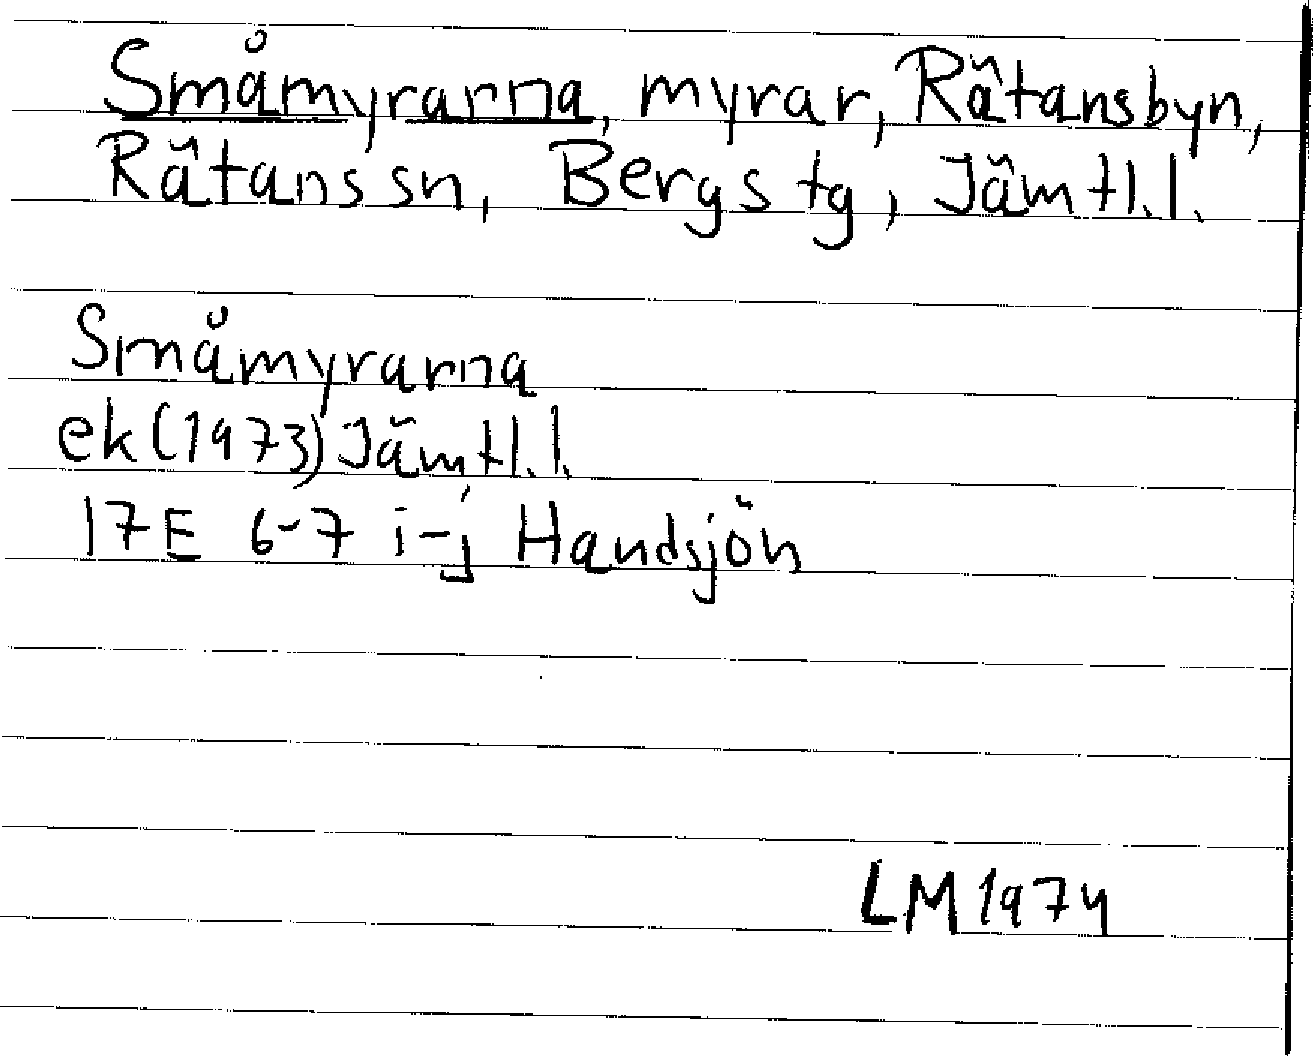 Småmyrarna, myrar, Rätansbyn,
Rätans sn, Bergs tg, Jämtl.l.
Småmyrarna
ek (1973) Jämtl.l.
17E 6-7 i-j Handsjön
LM 1974